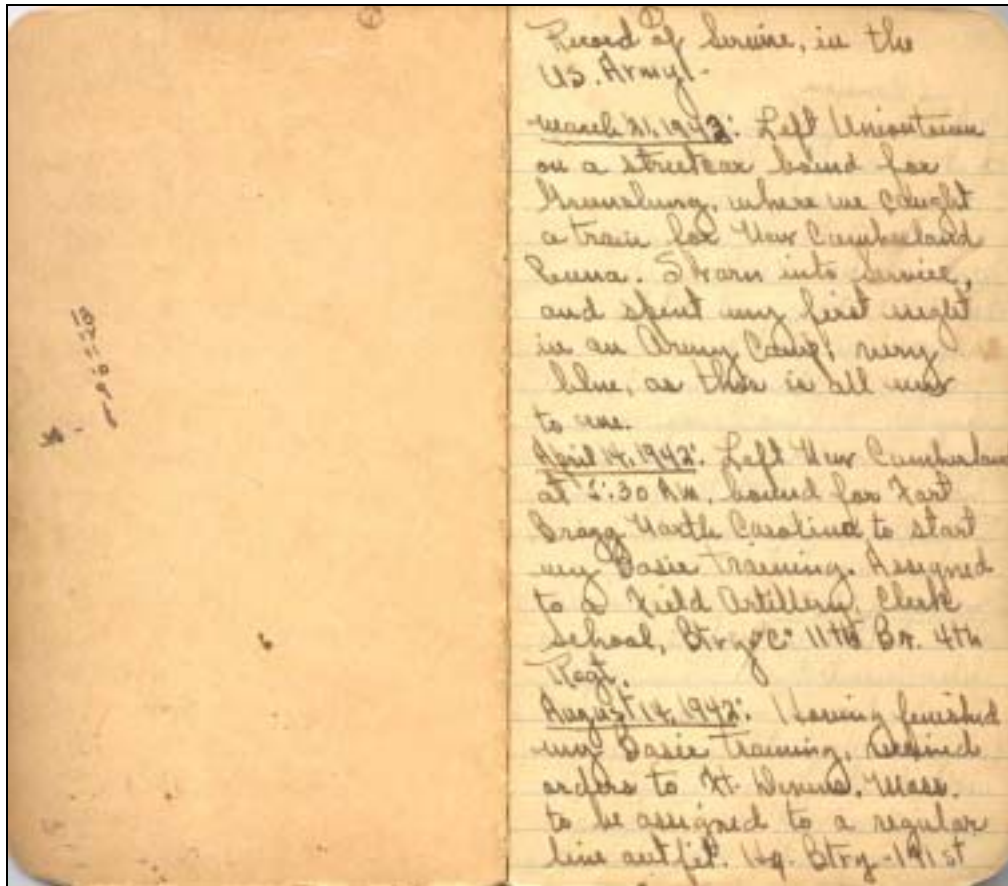 Record of Service, in the
US. Army.-
March 21, 1942: Left Uniontown
on a streetcar bound for
Greensburg, where we caught
a train for New Cumberland
Penna. Sworn into Service,
and spent my first night
in an Army Camp; very
blue, as this is all new
to me.
April 14, 1942: Left New Cumberland
at 5:30 A.M. bound for Fort
Bragg North Carolina to start
my Basic Training. Assigned
to a Field Artillery, Clerk
School, Btry "C" 11th Bn. 4th
Regt.
August 14, 1942: Having finished
my Basic Training, received
orders to Ft. Devens, Mass.
to be assigned to a regular
line outfit. Hq. Btry-191st